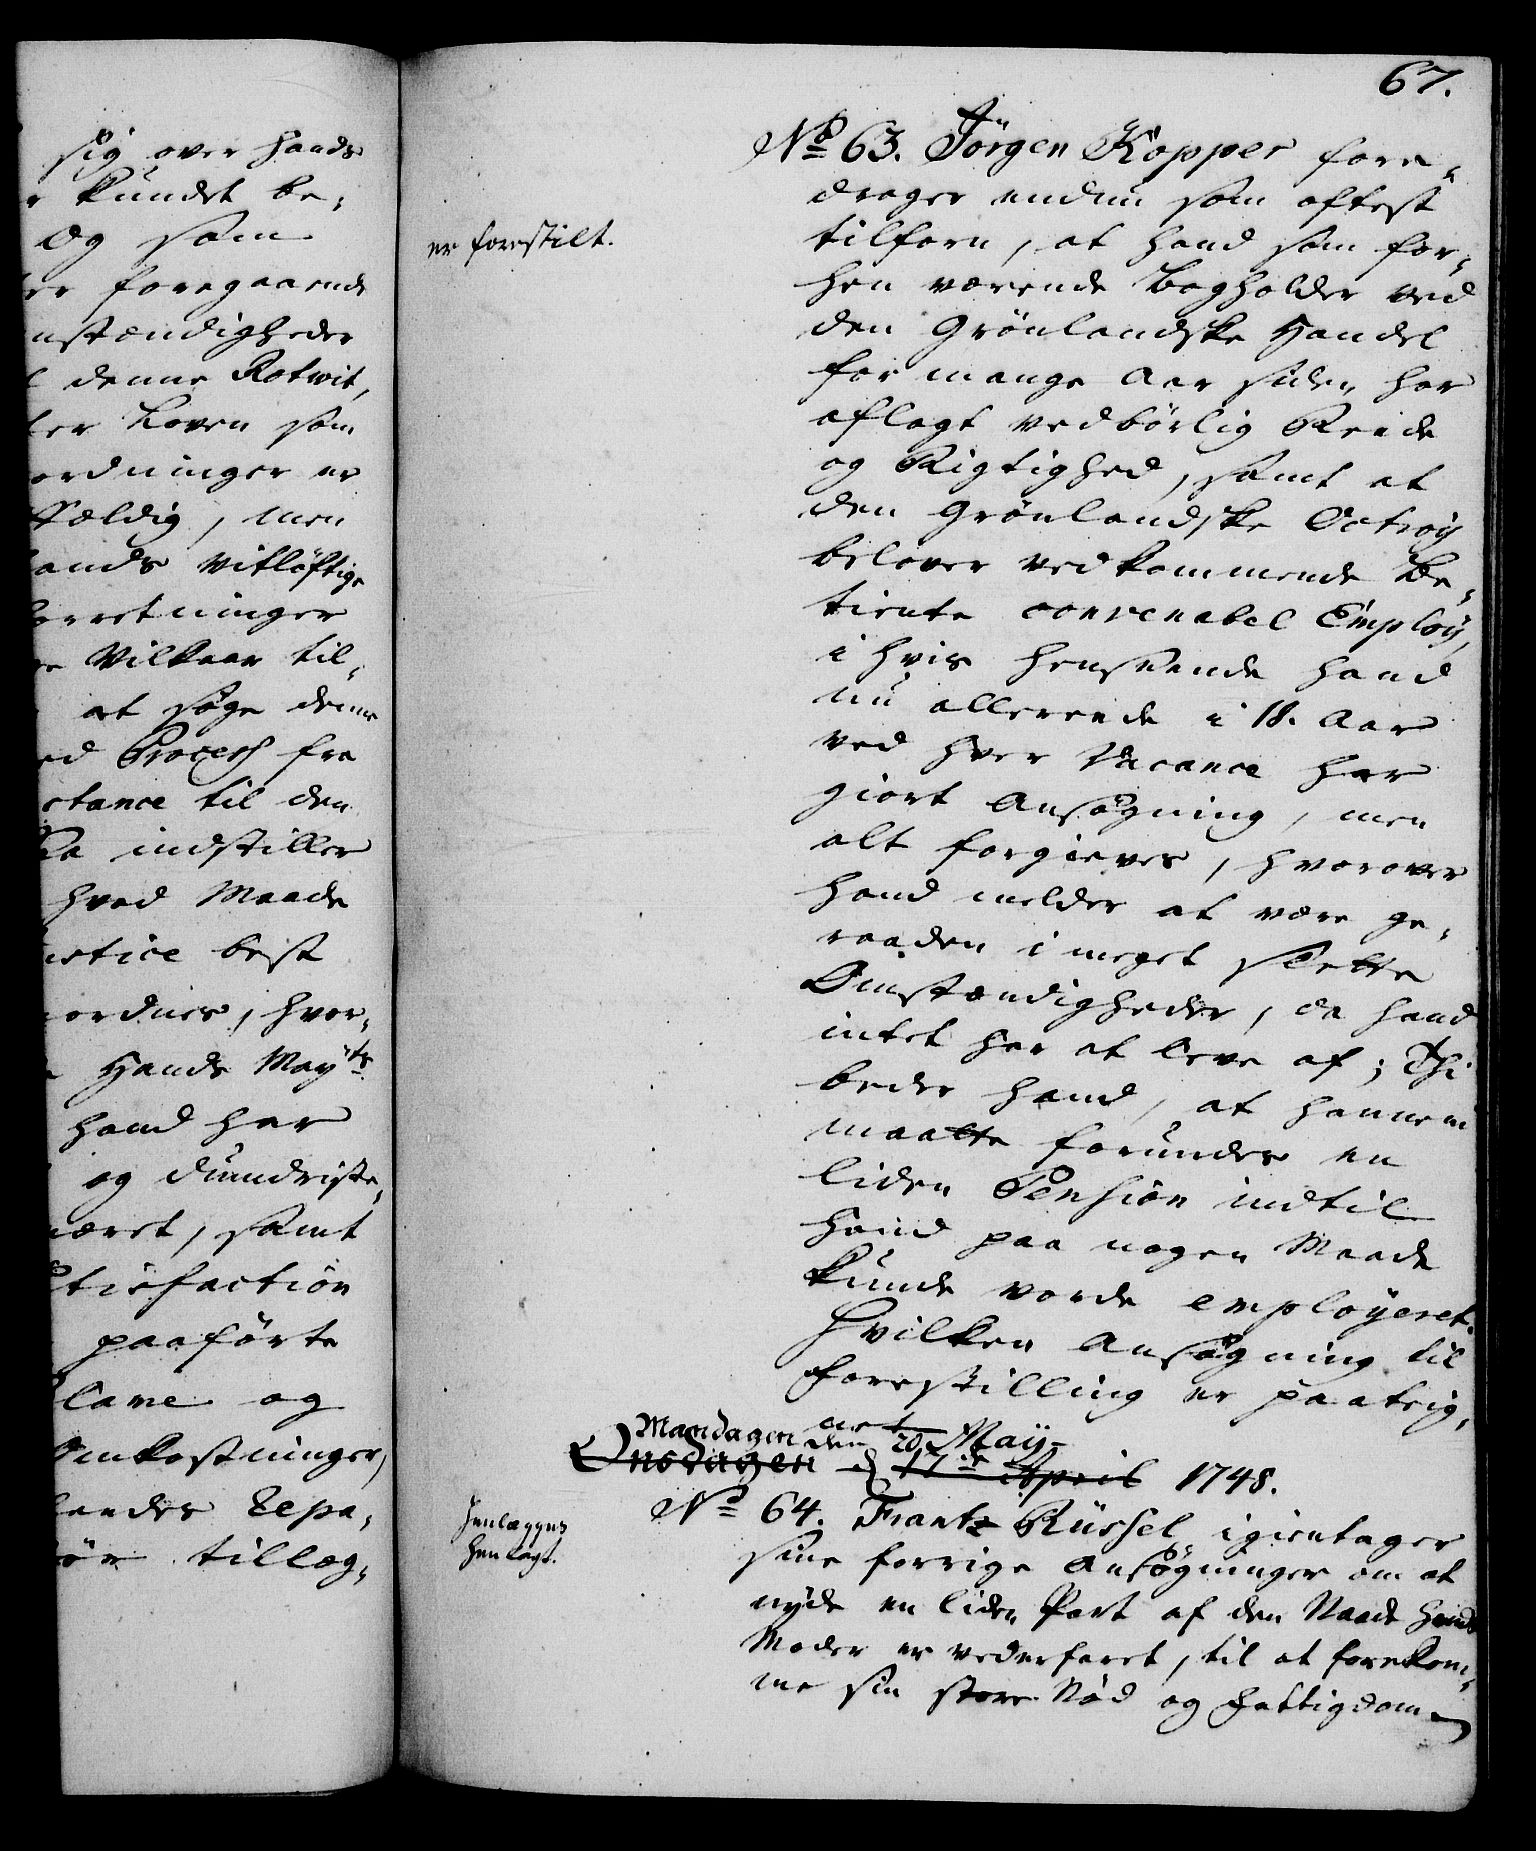 sig over hands
r kundet be,
og som
er foregaaende
mstændigheder
l denne Rotwit,
ter Loven som
ordninger er
fældig, men
ands vitløftige
forretninger
re Vilkaar til,
at søge denne
ed Process fra
stance til den
indstiller
hvad Maade
ustice best
ordnes, hvor,
Hands Mayts
hand har
og dumdriste,
været, samt
atisfaction
paaførte
lame og
Omkostninger,
landes Repa,
tillæg,
67.
er forestilt.
No 63. Jörgen Kopper fore,
drager endnu som oftest
tilforn, at hand som for,
hen værende Bogholder ved
den Grönlandske Handel
for mange Aar siden har
aflagt vedbörlig Reede
og Rigtighed, samt at
den Grönlandske Octroy
belover vedkommende Be,
tiente convenabel Employ,
i hvis henseende hand
nu allereede i 18. Aar
ved hver Vacance har
giort Ansögning, men
alt forgieves, hvorover
hand melder at være ge,
raaden i meget slette
Omstændigheder, da hand
intet har at leve af; Thi
beder hand, at hannem
maatte forundes en
liden Pension indtil
hand paa nogen Maade
kunde vorde employeret.
Hvilken Ansögning til
forestilling er paateig,
net
Mandagen den 20 May
Onsdagen d 17de April 1748.
henlægges
henlagt.
No 64. Frantz Rüssel igientager
sine forrige Ansögninger om at
nyde en liden Part af den Naade hands
Moder er vederfaret, til at forekom,
me sin store Nöd og Fattigdom